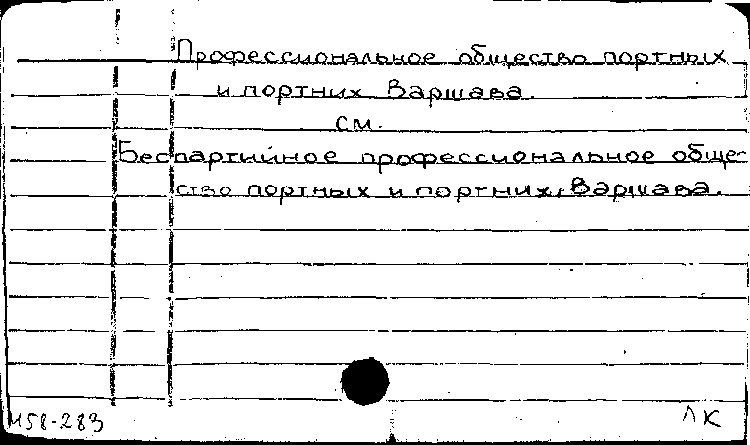 Профессиональное общество портных
и портних Варшава.
см.
Беспартийное профессиональное обще-
ство портных и портних, Варшава.
М58-283
ЛК